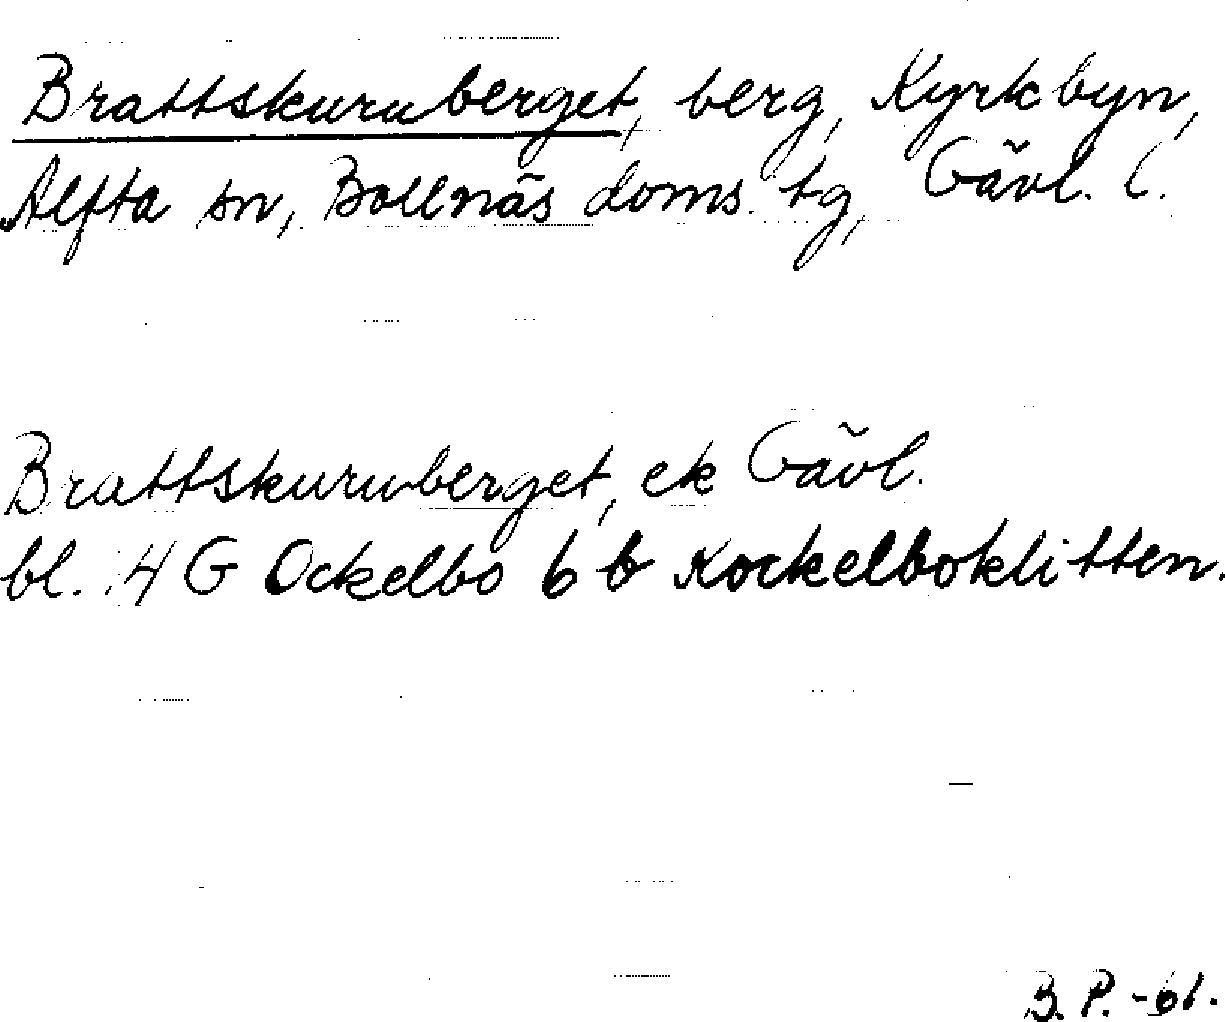 Brattskuruberget, berg, Kyrkbyn,
Alfta sn, Bollnäs doms. tg, Gävl. l.
Brattskuruberget, ek Gävl.
bl. 14 G Ockelbo 6 b Kockelboklitten.
B. P. -61.